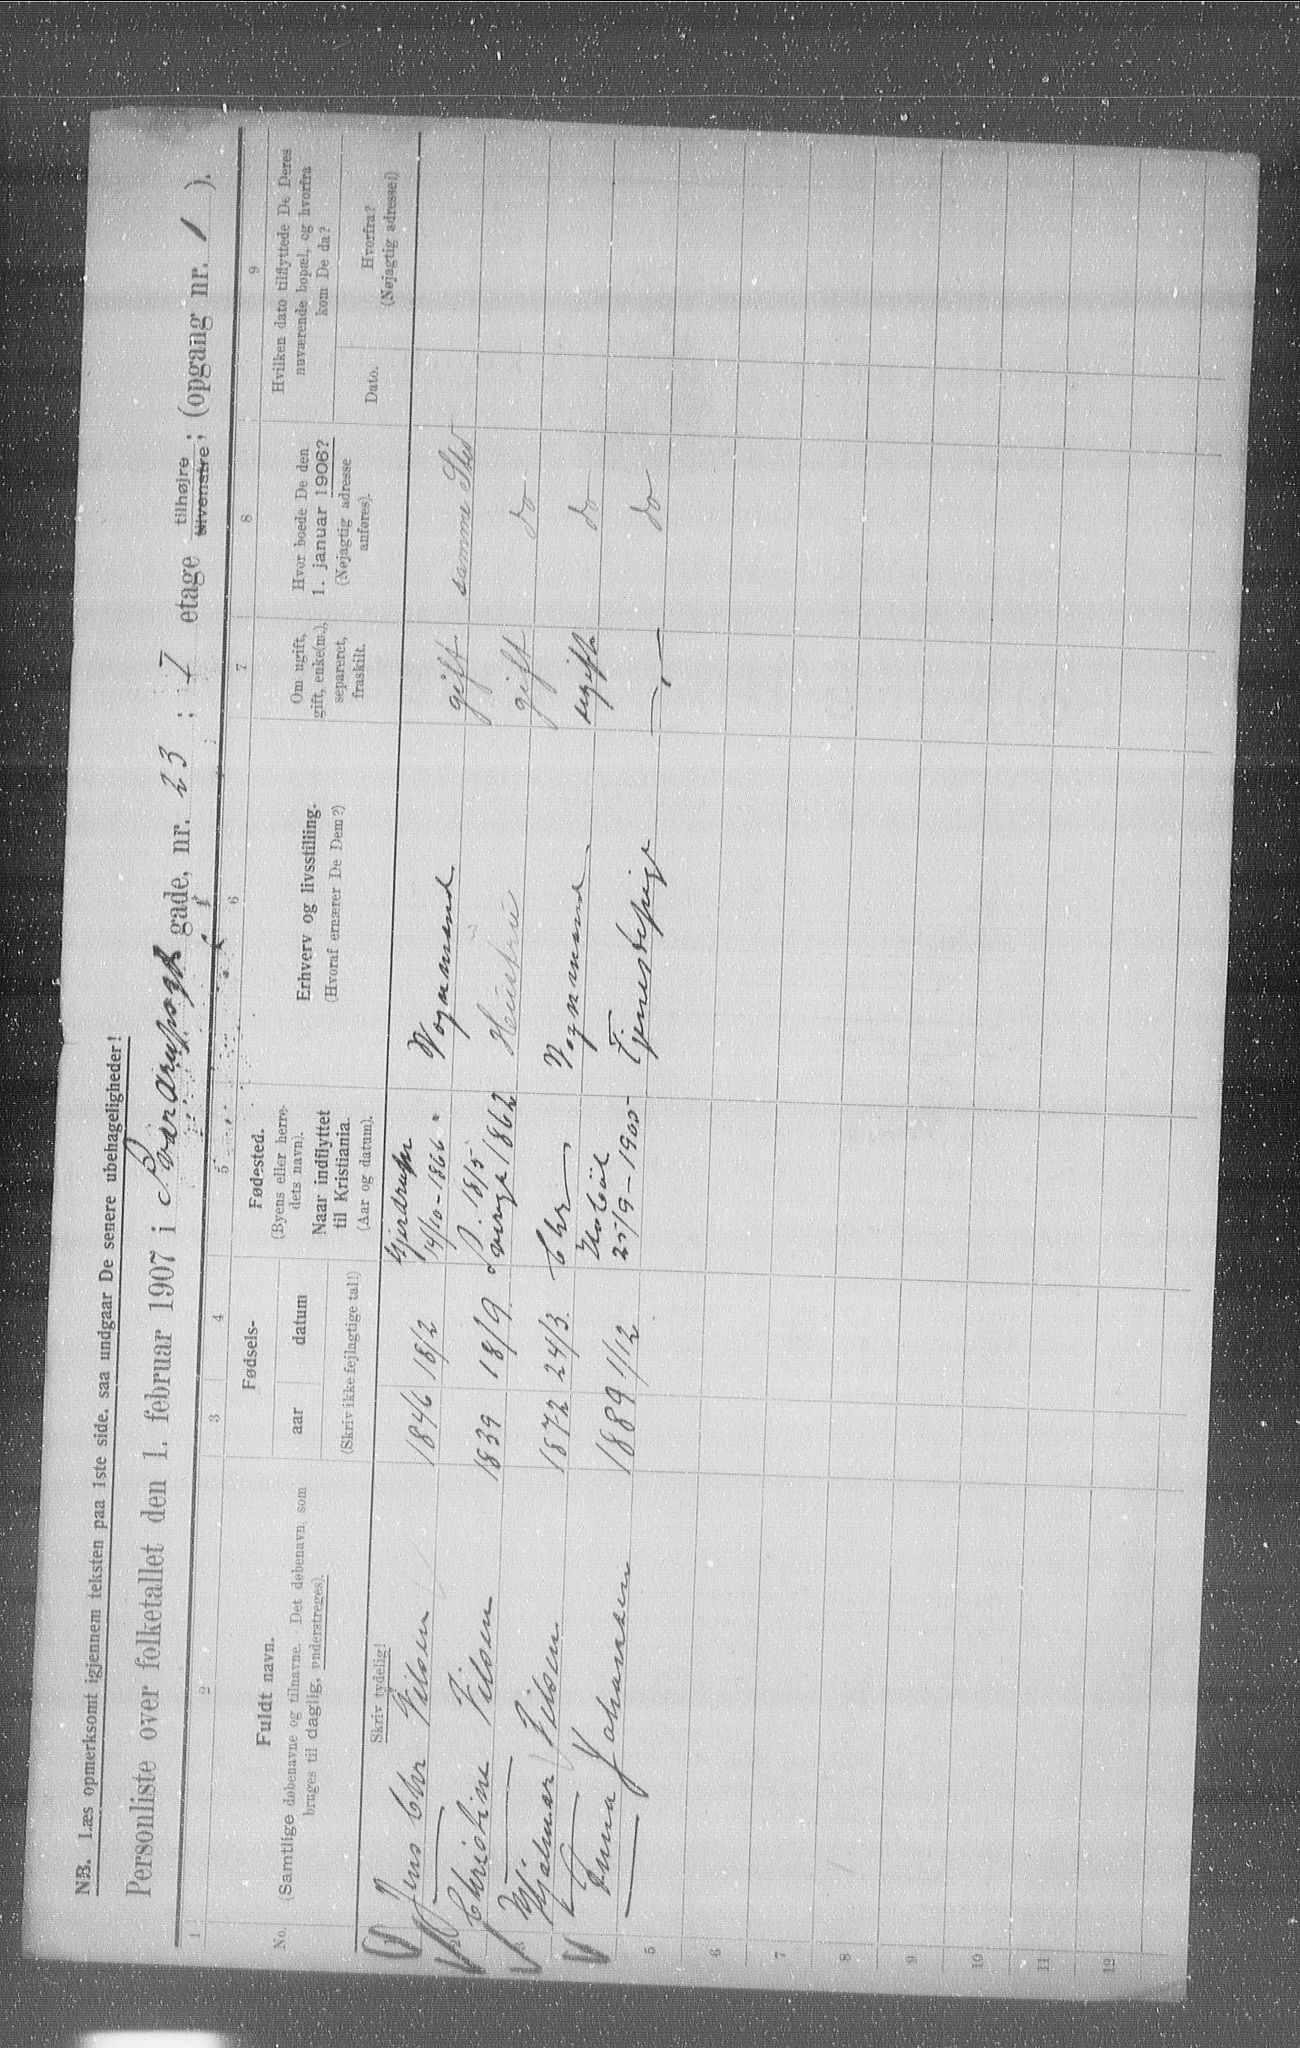 NB. Læs opmerksomt igjennem teksten paa 1ste side, saa undgaar De senere ubehageligheder!
Personliste over folketallet den 1. februar 1907 i gade, nr. 23 ; 1 etage tilhøjre tilvenstre; (opgang nr. 1 ).
1 2 3 4 5 6 7 8 9
No.
Fuldt navn.
(Samtlige døbenavne og tilnavne. Det døbenavn, som
bruges til daglig, understreges).
Fødsels-
aar datum
(Skriv ikke fejlagtige tal!)
Fødested.
(Byens eller herre-
dets navn).
Naar indflyttet
til Kristiania.
(Aar og datum).
Erhverv og livsstilling.
(Hvoraf ernærer De Dem?)
Om ugift,
gift, enke(m.),
separeret,
fraskilt.
Hvor boede De den
1. januar 1906?
(Nøjagtig adresse
anføres).
Hvilken dato tilflyttede De Deres
nuværende bopæl, og hvorfra
kom De da?
Dato.
Hvorfra?
(Nøjagtig adresse!)
Skriv tydelig!
Jens Chr Nilsen 1846 18/2 Gjerdrum 14/10-1866 Vognmand gift samme Sted
2 Christine Nilsen 1839 18/9 18/5 1862 Hustru gift do
3 Hjalmar Nilsen 1872 24/3 Chr Vognmand ugift do
Anna Johansen 1889 1/12 25/9-1900 Tjenestepige — " — do
5
6
7
8
9
10
11
12